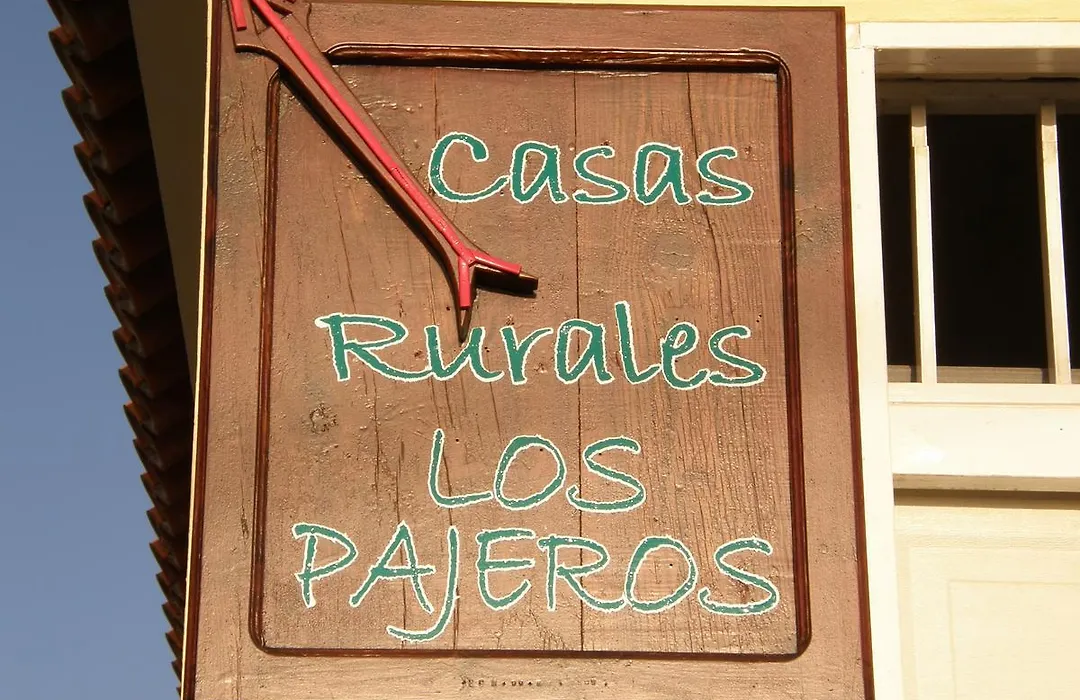 Casas
Rurales
LOS
PAJEROS